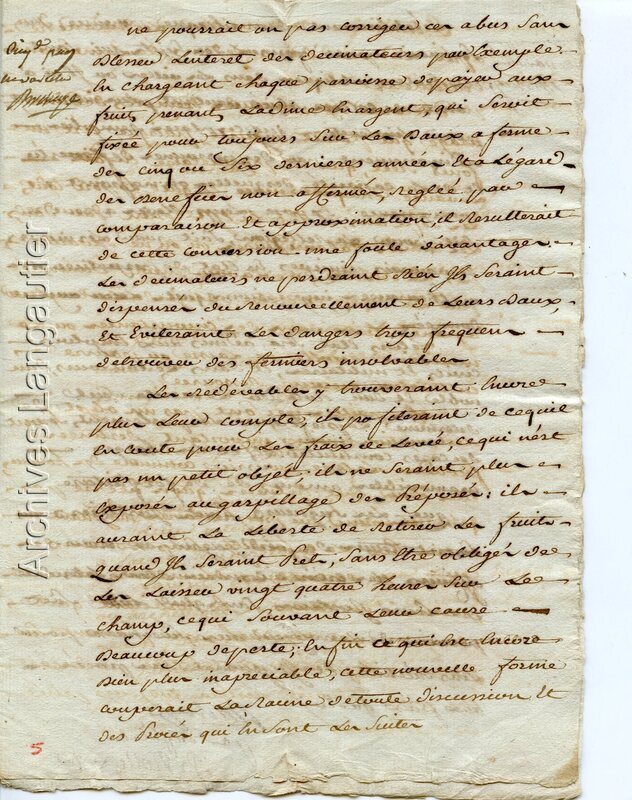 ne pourrait on pas corriger cet abus sans
Blesser Linteret des decimateurs par Exemple
En chargeant chaque parroisse de payer aux
fruits prenants La dime En argent, qui seroit
fixée pour toujours sur Les Baux a ferme
des cinq ou six dernieres années Et a Légard
des Beneficier non affermés, Reglée, par
comparaison Et approximation; il Resulterait
de cette conversion une foule d'avantages
Les decimateurs ne perdraint Rien Ils seraint
dispensés du Renouvellement de Leurs Baux,
Et Eviteraint Les dangers trop frequens
de trouver des fermiers insolvables
Les Redévables y trouveraint Encore
plus Leur compte; ils profiteraint de ce quil
En coute pour Les fraix de Levée, ce qui n'est
pas un petit objet; ils ne seraint plus
Exposés au gaspillage des Préposés: ils
auraint La Liberté de Retirer Les fruits
quand Ils seraint Pret, sans Etre obligés de
Les Laisser vingt quatre heures sur Le
champ, ce qui souvant Leur cause
Beaucoup de perte; Enfin ce qui Est Encore
Bien plus inapreciable, cette nouvelle forme
couperait La Racine de toute discussion Et
des Procés qui En sont Les suites
5
Archives Langautier